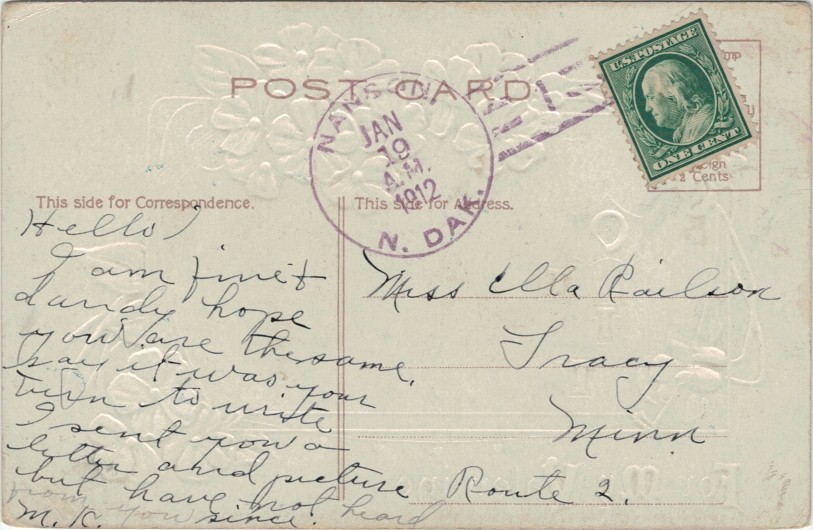 POST CARD
NANSON
JAN
19
A.M.
1912
N. DAK.
1
U.S. POSTAGE
ONE CENT
2 Cents
This side for Correspondence.
This side for Address.
Hello!
I am fine &
dandy hope
you are the same.
say it was your
turn to write
I sent you a
letter and picture
but have not heard
from you since.
M. K.
Miss Ella Railson
Tracy
Minn
Route 2.